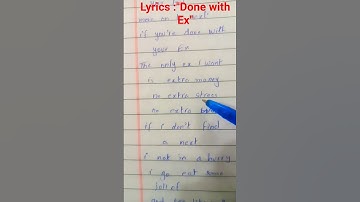 Lyrics : Done with
Ex
move on to next
if you're done with
your Ex
The only ex I want
is extra money
no extra stress
no extra
if I don't find
a next
I not in a hurry
I go not